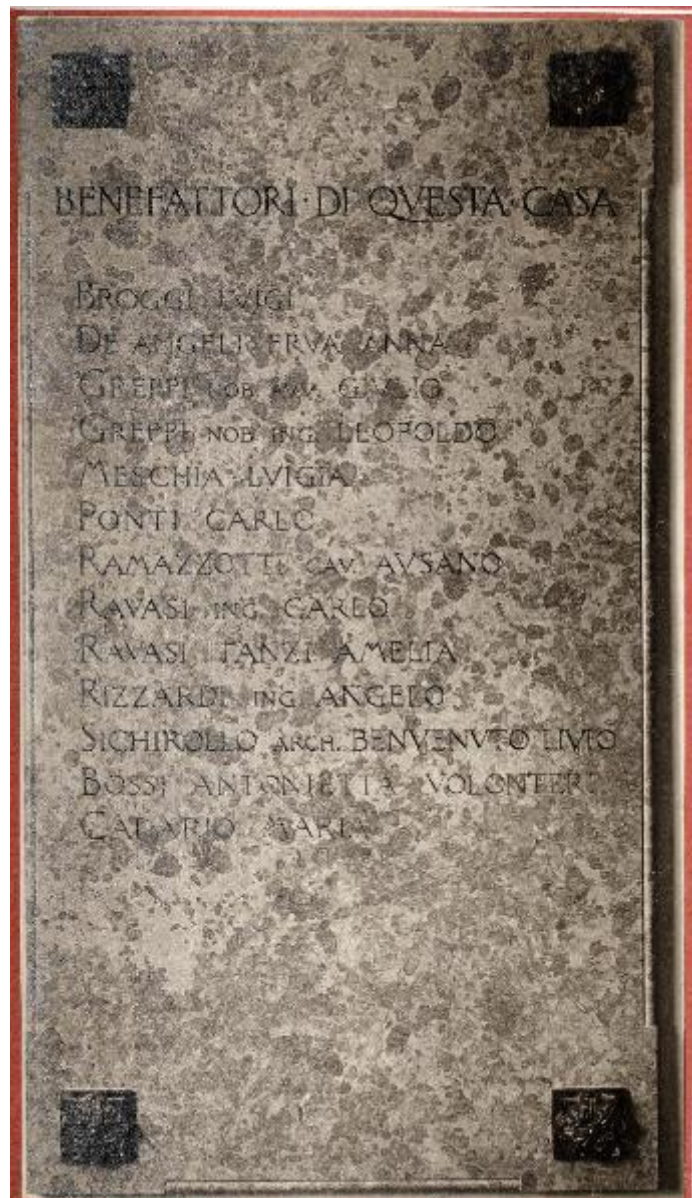 BENEFATTORI·DI QVESTA·CASA
BROGGI LVIGI
DE ANGELI ERVA ANNA
GREPPI NOB. GIVLIO
GREPPI NOB. ING. LEOPOLDO
MESCHIA LVIGIA
PONTI CARLO
RAMAZZOTTI CAV. AVSANO
RAVASI ING. CARLO
RAVASI TANZI AMELIA
RIZZARDI ING. ANGELO
SICHIROLLO ARCH. BENVENVTO LIVIO
BOSSI ANTONIETTA VOLONTERI
MARIA